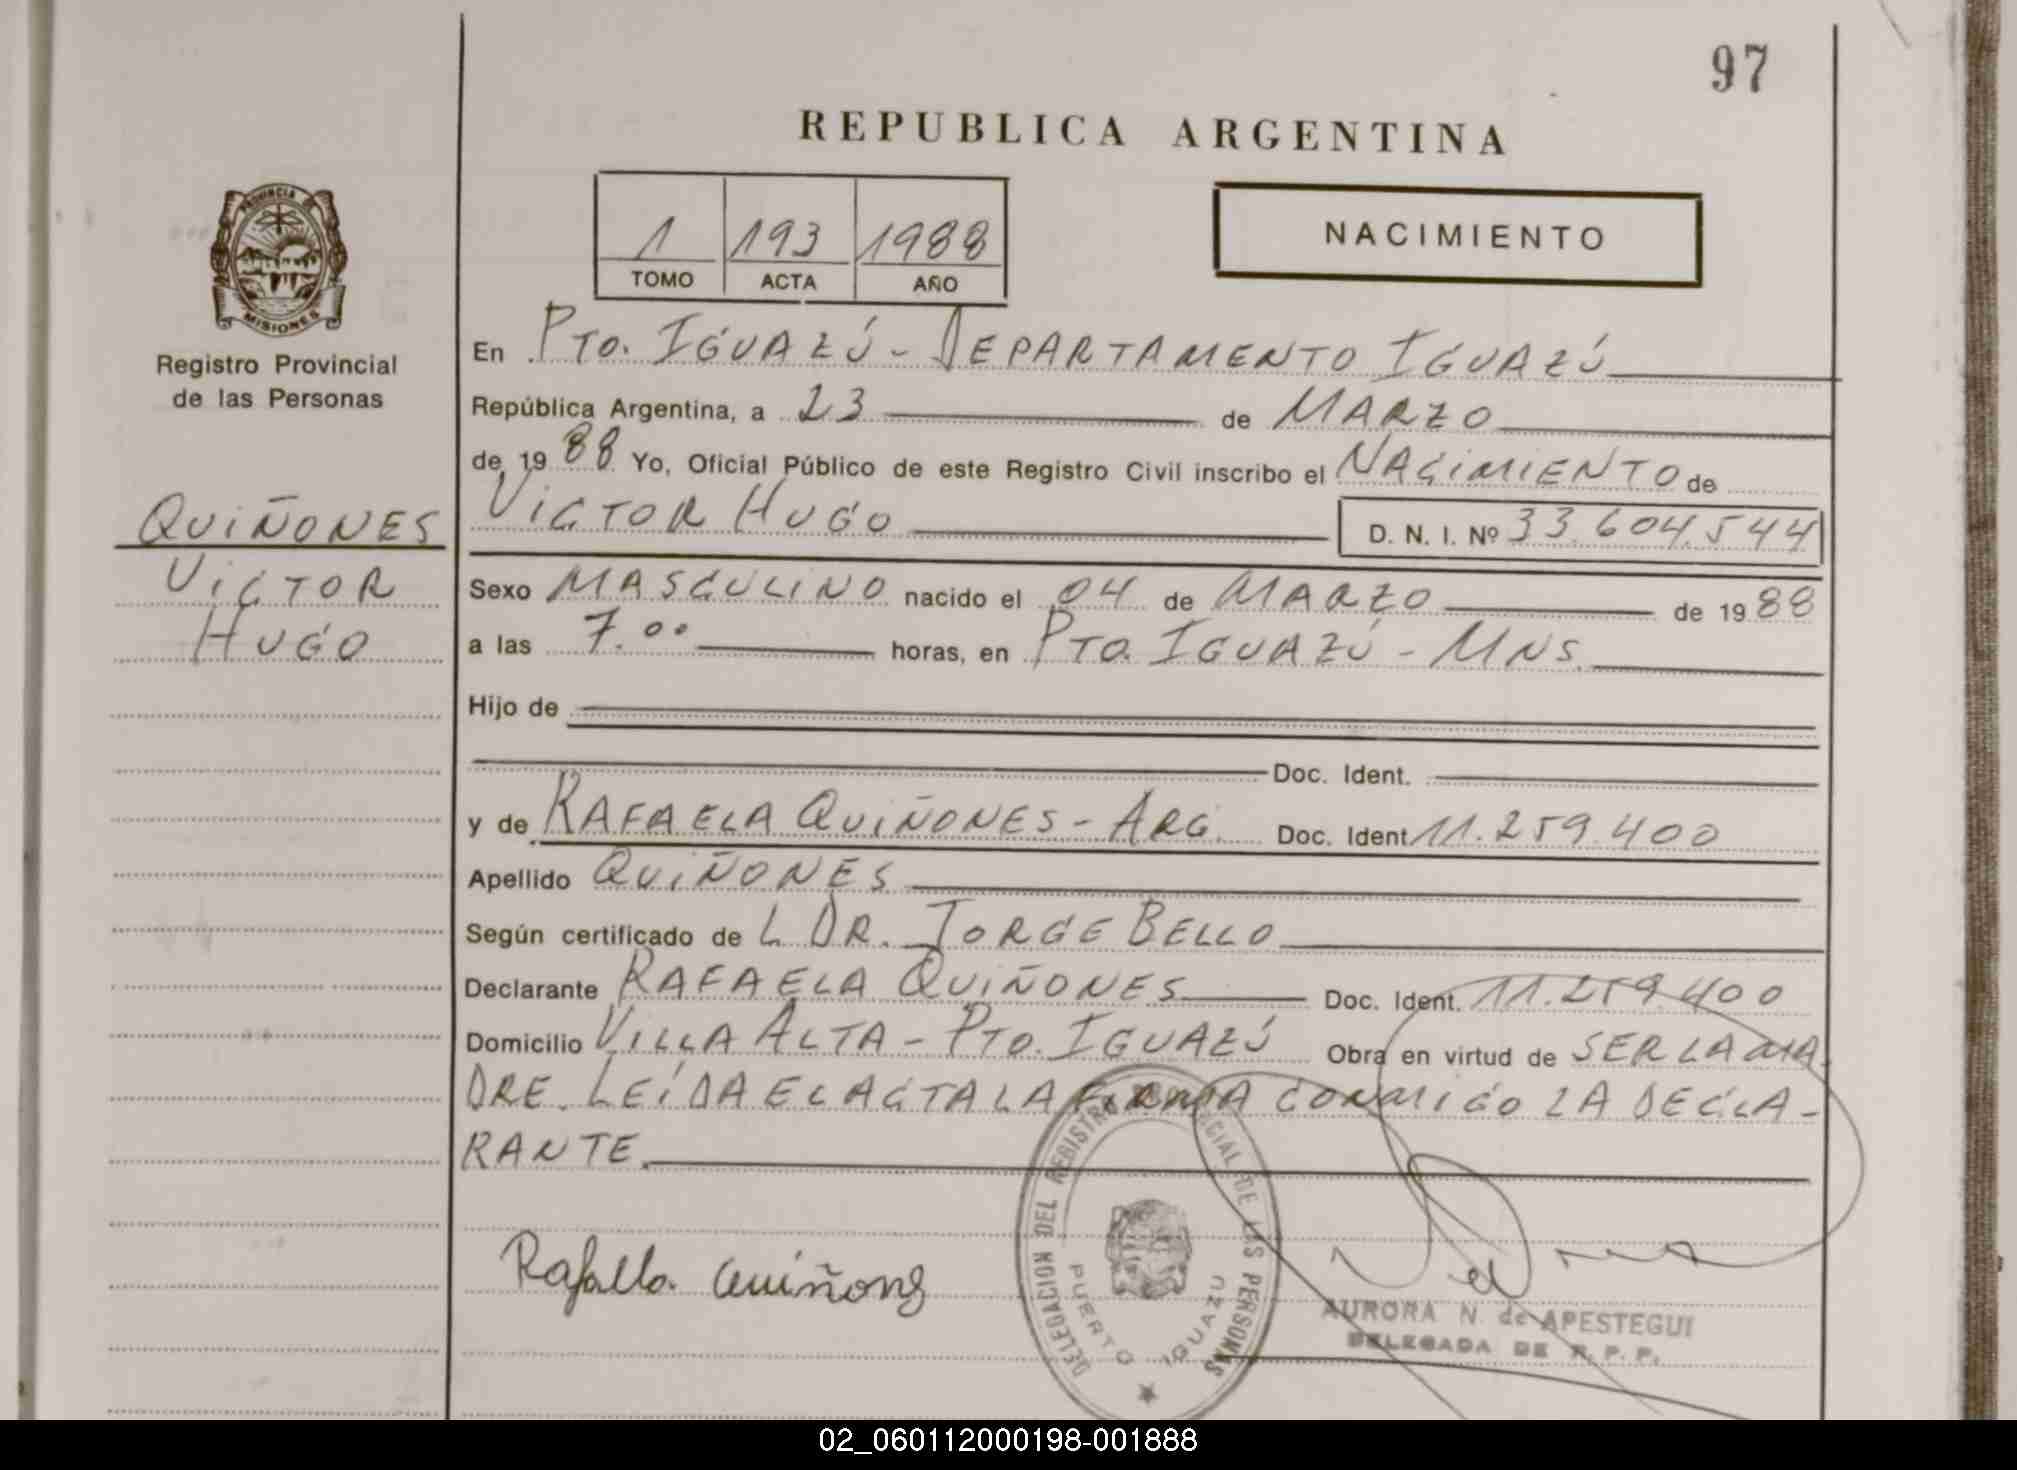 97
REPUBLICA ARGENTINA
PROVINCIA DE
MISIONES
Registro Provincial
de las Personas
1 193 1988
TOMO ACTA AÑO
NACIMIENTO
QUIÑONES
VICTOR
HUGO
En PTO. IGUAZÚ - DEPARTAMENTO IGUAZÚ
República Argentina, a 23 de MARZO
de 1988 Yo, Oficial Público de este Registro Civil inscribo el NACIMIENTO de
VICTOR HUGO D. N. I. Nº 33.604.544
Sexo MASCULINO nacido el 04 de MARZO de 1988
a las 7.00 horas, en PTO. IGUAZÚ - MNS.
Hijo de
Doc. Ident.
y de RAFAELA QUIÑONES - ARG. Doc. Ident 11.259.400
Apellido QUIÑONES
Según certificado de L DR. JORGE BELLO
Declarante RAFAELA QUIÑONES Doc. Ident. 11.259.400
Domicilio VILLA ALTA - PTO. IGUAZÚ Obra en virtud de SER LA MA-
DRE. LEÍDA EL ACTA LA FIRMA CONMIGO LA DECLA-
RANTE.
Rafaela Quiñones
DELEGACION DEL REGISTRO PROVINCIAL DE LAS PERSONAS
PUERTO IGUAZU
AURORA N. de APESTEGUI
DELEGADA DE R. P. P.
02_060112000198-001888